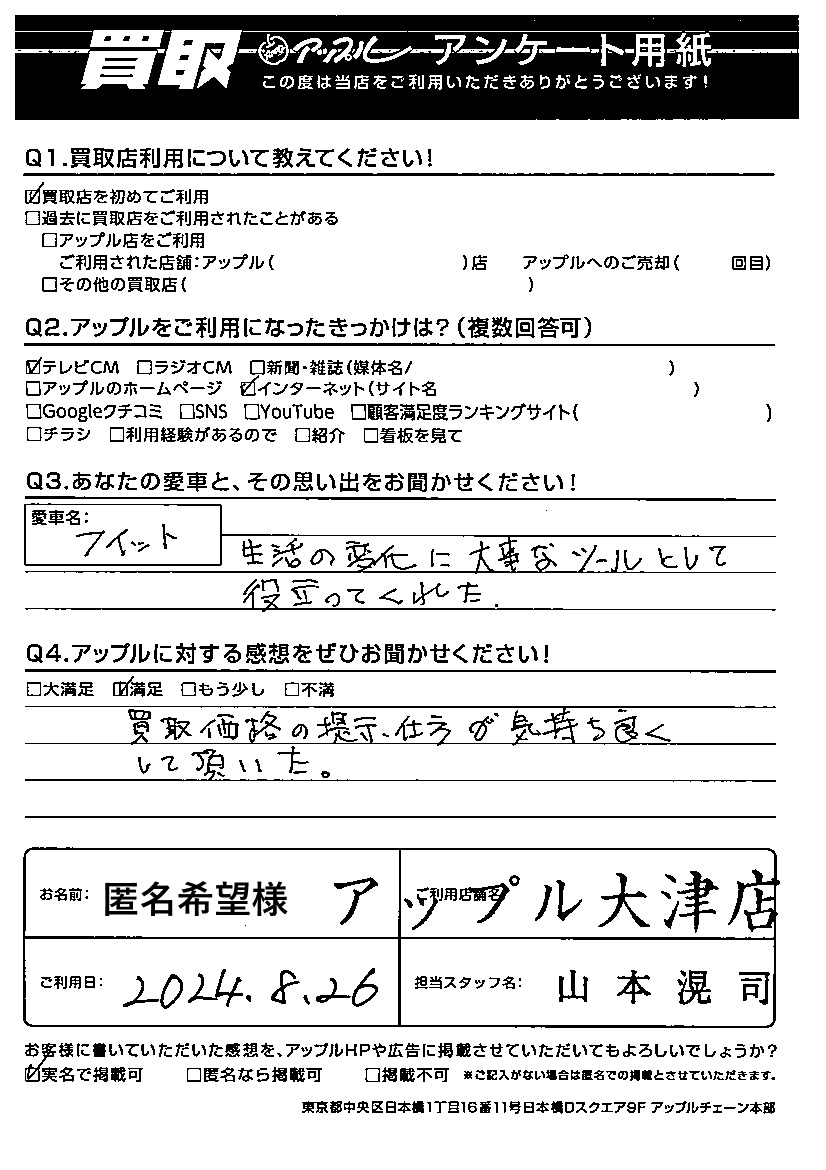 買取 アップル アンケート用紙
この度は当店をご利用いただきありがとうございます!
Q1.買取店利用について教えてください!
☑買取店を初めてご利用
□過去に買取店をご利用されたことがある
□アップル店をご利用
ご利用された店舗:アップル( )店 アップルへのご売却( 回目)
□その他の買取店( )
Q2.アップルをご利用になったきっかけは?(複数回答可)
☑テレビCM □ラジオCM □新聞・雑誌(媒体名/ )
□アップルのホームページ ☑インターネット(サイト名 )
□Googleクチコミ □SNS □YouTube □顧客満足度ランキングサイト( )
□チラシ □利用経験があるので □紹介 □看板を見て
Q3.あなたの愛車と、その思い出をお聞かせください!
愛車名:
フィット
生活の変化に大事なツールとして
役立ってくれた.
Q4.アップルに対する感想をぜひお聞かせください!
□大満足 ☑満足 □もう少し □不満
買取価格の提示、仕方が気持ち良く
して頂いた。
お名前: 匿名希望様 ご利用店舗名 アップル大津店
ご利用日: 2024.8.26 担当スタッフ名: 山本滉司
お客様に書いていただいた感想を、アップルHPや広告に掲載させていただいてもよろしいでしょうか?
☑実名で掲載可 □匿名なら掲載可 □掲載不可 ※ご記入がない場合は匿名での掲載とさせていただきます。
東京都中央区日本橋1丁目16番11号日本橋Dスクエア9F アップルチェーン本部